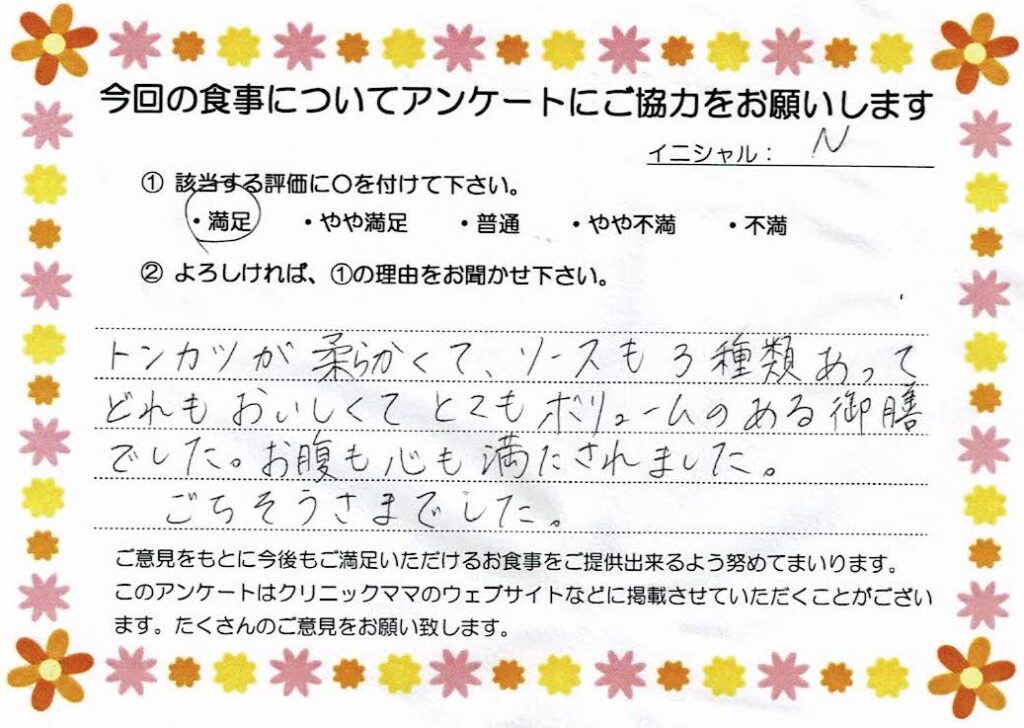 今回の食事についてアンケートにご協力をお願いします
イニシャル： N
① 該当する評価に〇を付けて下さい。
・満足 ・やや満足 ・普通 ・やや不満 ・不満
② よろしければ、①の理由をお聞かせ下さい。
トンカツが柔らかくて、ソースも3種類あって
どれもおいしくてとてもボリュームのある御膳
でした。お腹も心も満たされました。
ごちそうさまでした。
ご意見をもとに今後もご満足いただけるお食事をご提供出来るよう努めてまいります。
このアンケートはクリニックママのウェブサイトなどに掲載させていただくことがござい
ます。たくさんのご意見をお願い致します。